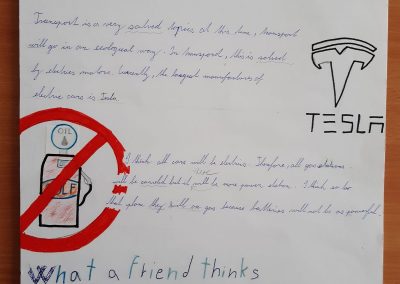 Transport is a very solved topics at this time, transport
will go in an ecological way. In transport, this is solved
by electric motors. Currently, the largest manufacturer of
electric cars is Tesla.
TESLA
OIL
I think all cars will be electric. Therefore, all gas stations
will be canceled but there will be more power station. I think, so
that plane they will on gas because batteries will not be as powerful.
What a friend thinks